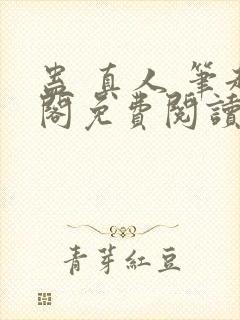 蠱真人 筆
閣免費閱讀
青芽紅豆